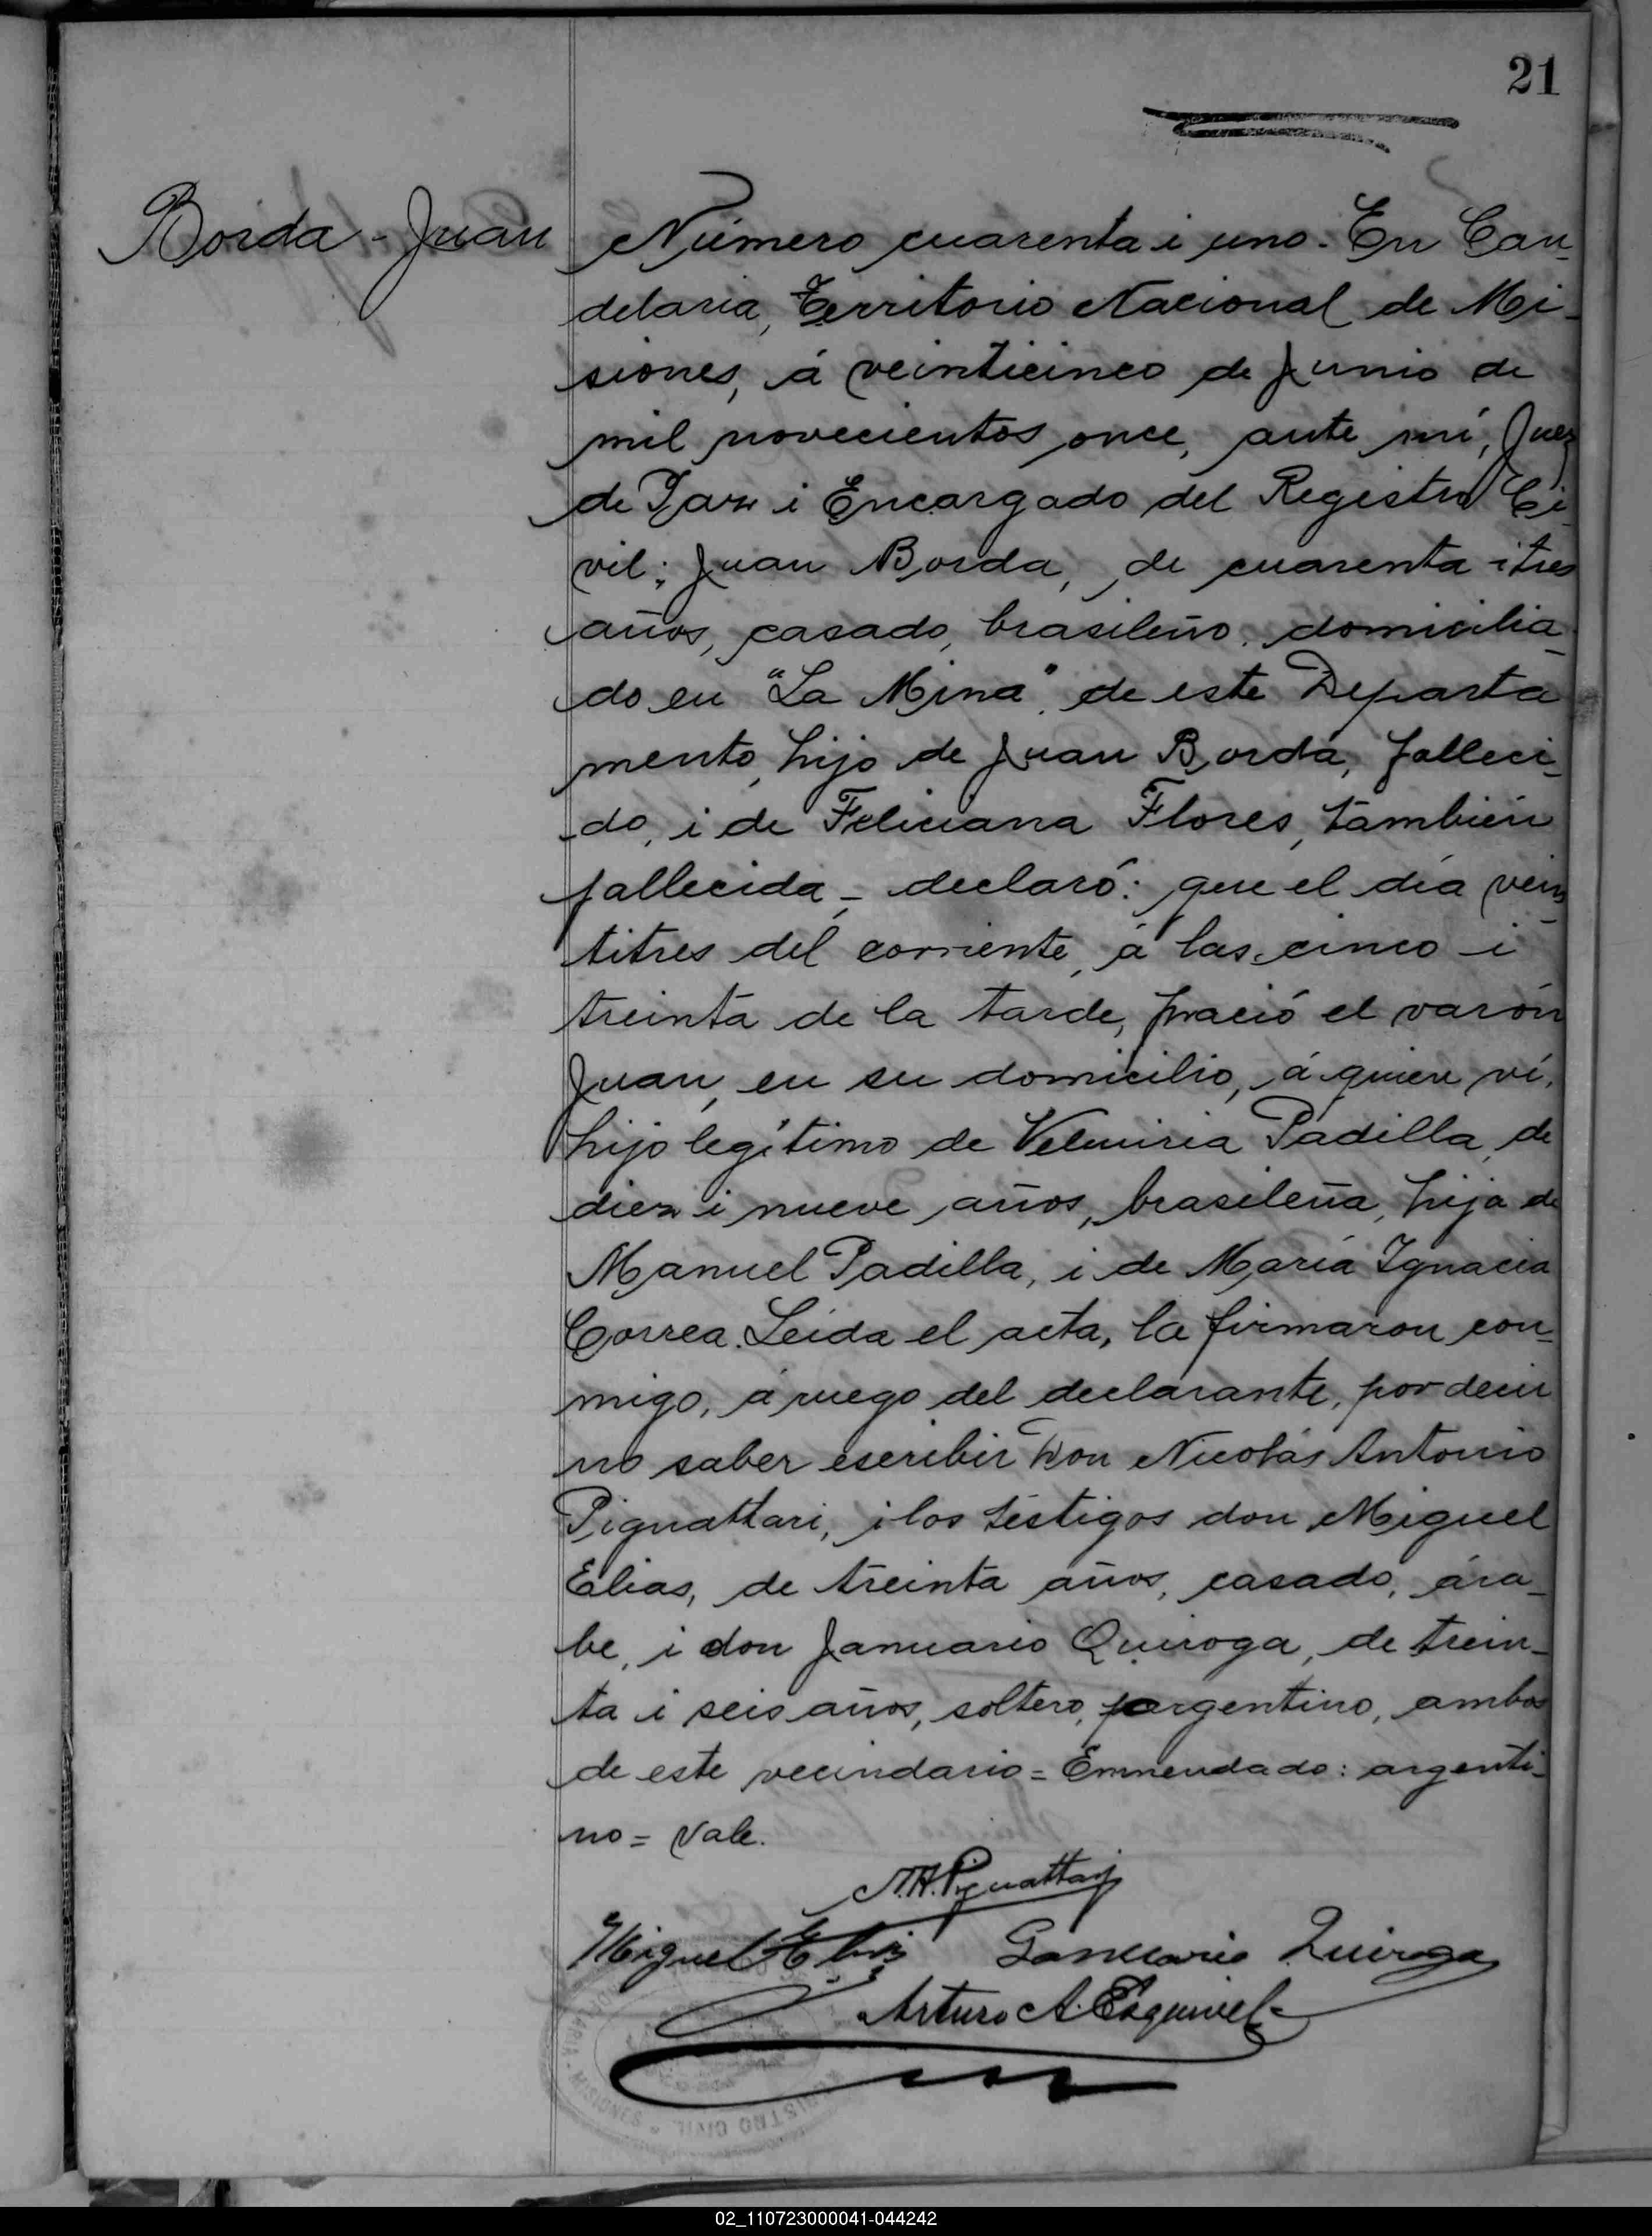 21
Borda - Juan
Número cuarenta i uno. En Can-
delaria, Territorio Nacional de Mi-
siones, á veinticinco de Junio de
mil novecientos once, ante mí, Juez
de Paz i Encargado del Registro Ci-
vil; Juan Borda, de cuarenta i tres
años, casado, brasileño, domicilia-
do en "La Mina", de este Departa
mento, hijo de Juan Borda, falleci-
do, i de Feliciana Flores, también
fallecida - declaró: que el día vein-
titres del corriente, á las cinco i
treinta de la tarde, nació el varón
Juan, en su domicilio, á quien ví,
hijo legítimo de Velmiria Padilla, de
diez i nueve años, brasileña, hija de
Manuel Padilla, i de María Ignacia
Correa. Leida el acta, la firmaron con-
migo, á ruego del declarante, por decir
no saber escribir don Nicolás Antonio
Pignattari, i los testigos don Miguel
Elias, de treinta años, casado, ára-
be, i don Januario Quiroga, de trein-
ta i seis años, soltero, argentino, ambos
de este vecindario = Enmendado: argenti-
no = Vale.
N.A. Pignattari
Miguel Elias Januario Quiroga
Arturo A. Esquivel
MISIONES
REGISTRO CIVIL
02_110723000041-044242